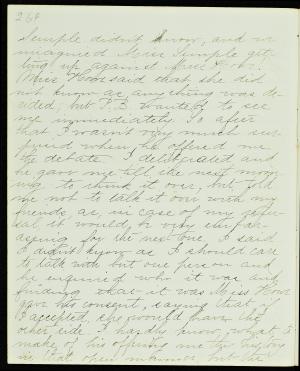 264
Semple didn't know, and we
imagined Miss Semple get-
ting up against Miss
Miss Howe said that she did
not know as anything was de-
cided, but T.B. wanted to see
me immediately. So after
that I wasn't very much sur-
prised when he offered me
the debate. I deliberated and
he gave me till the next morn-
ing to think it over, but told
me not to talk it over with my
friends, as, in case of my refu-
sal it would be very embar-
assing for the next one. I said
I didn't know as I should care
to talk with but one person and
he inquired who it was and
finding that it was Miss Howe
gave his consent, saying that if
I accepted, she would have the
other side. I hardly know what to
make of his offering me the
in that manner but the